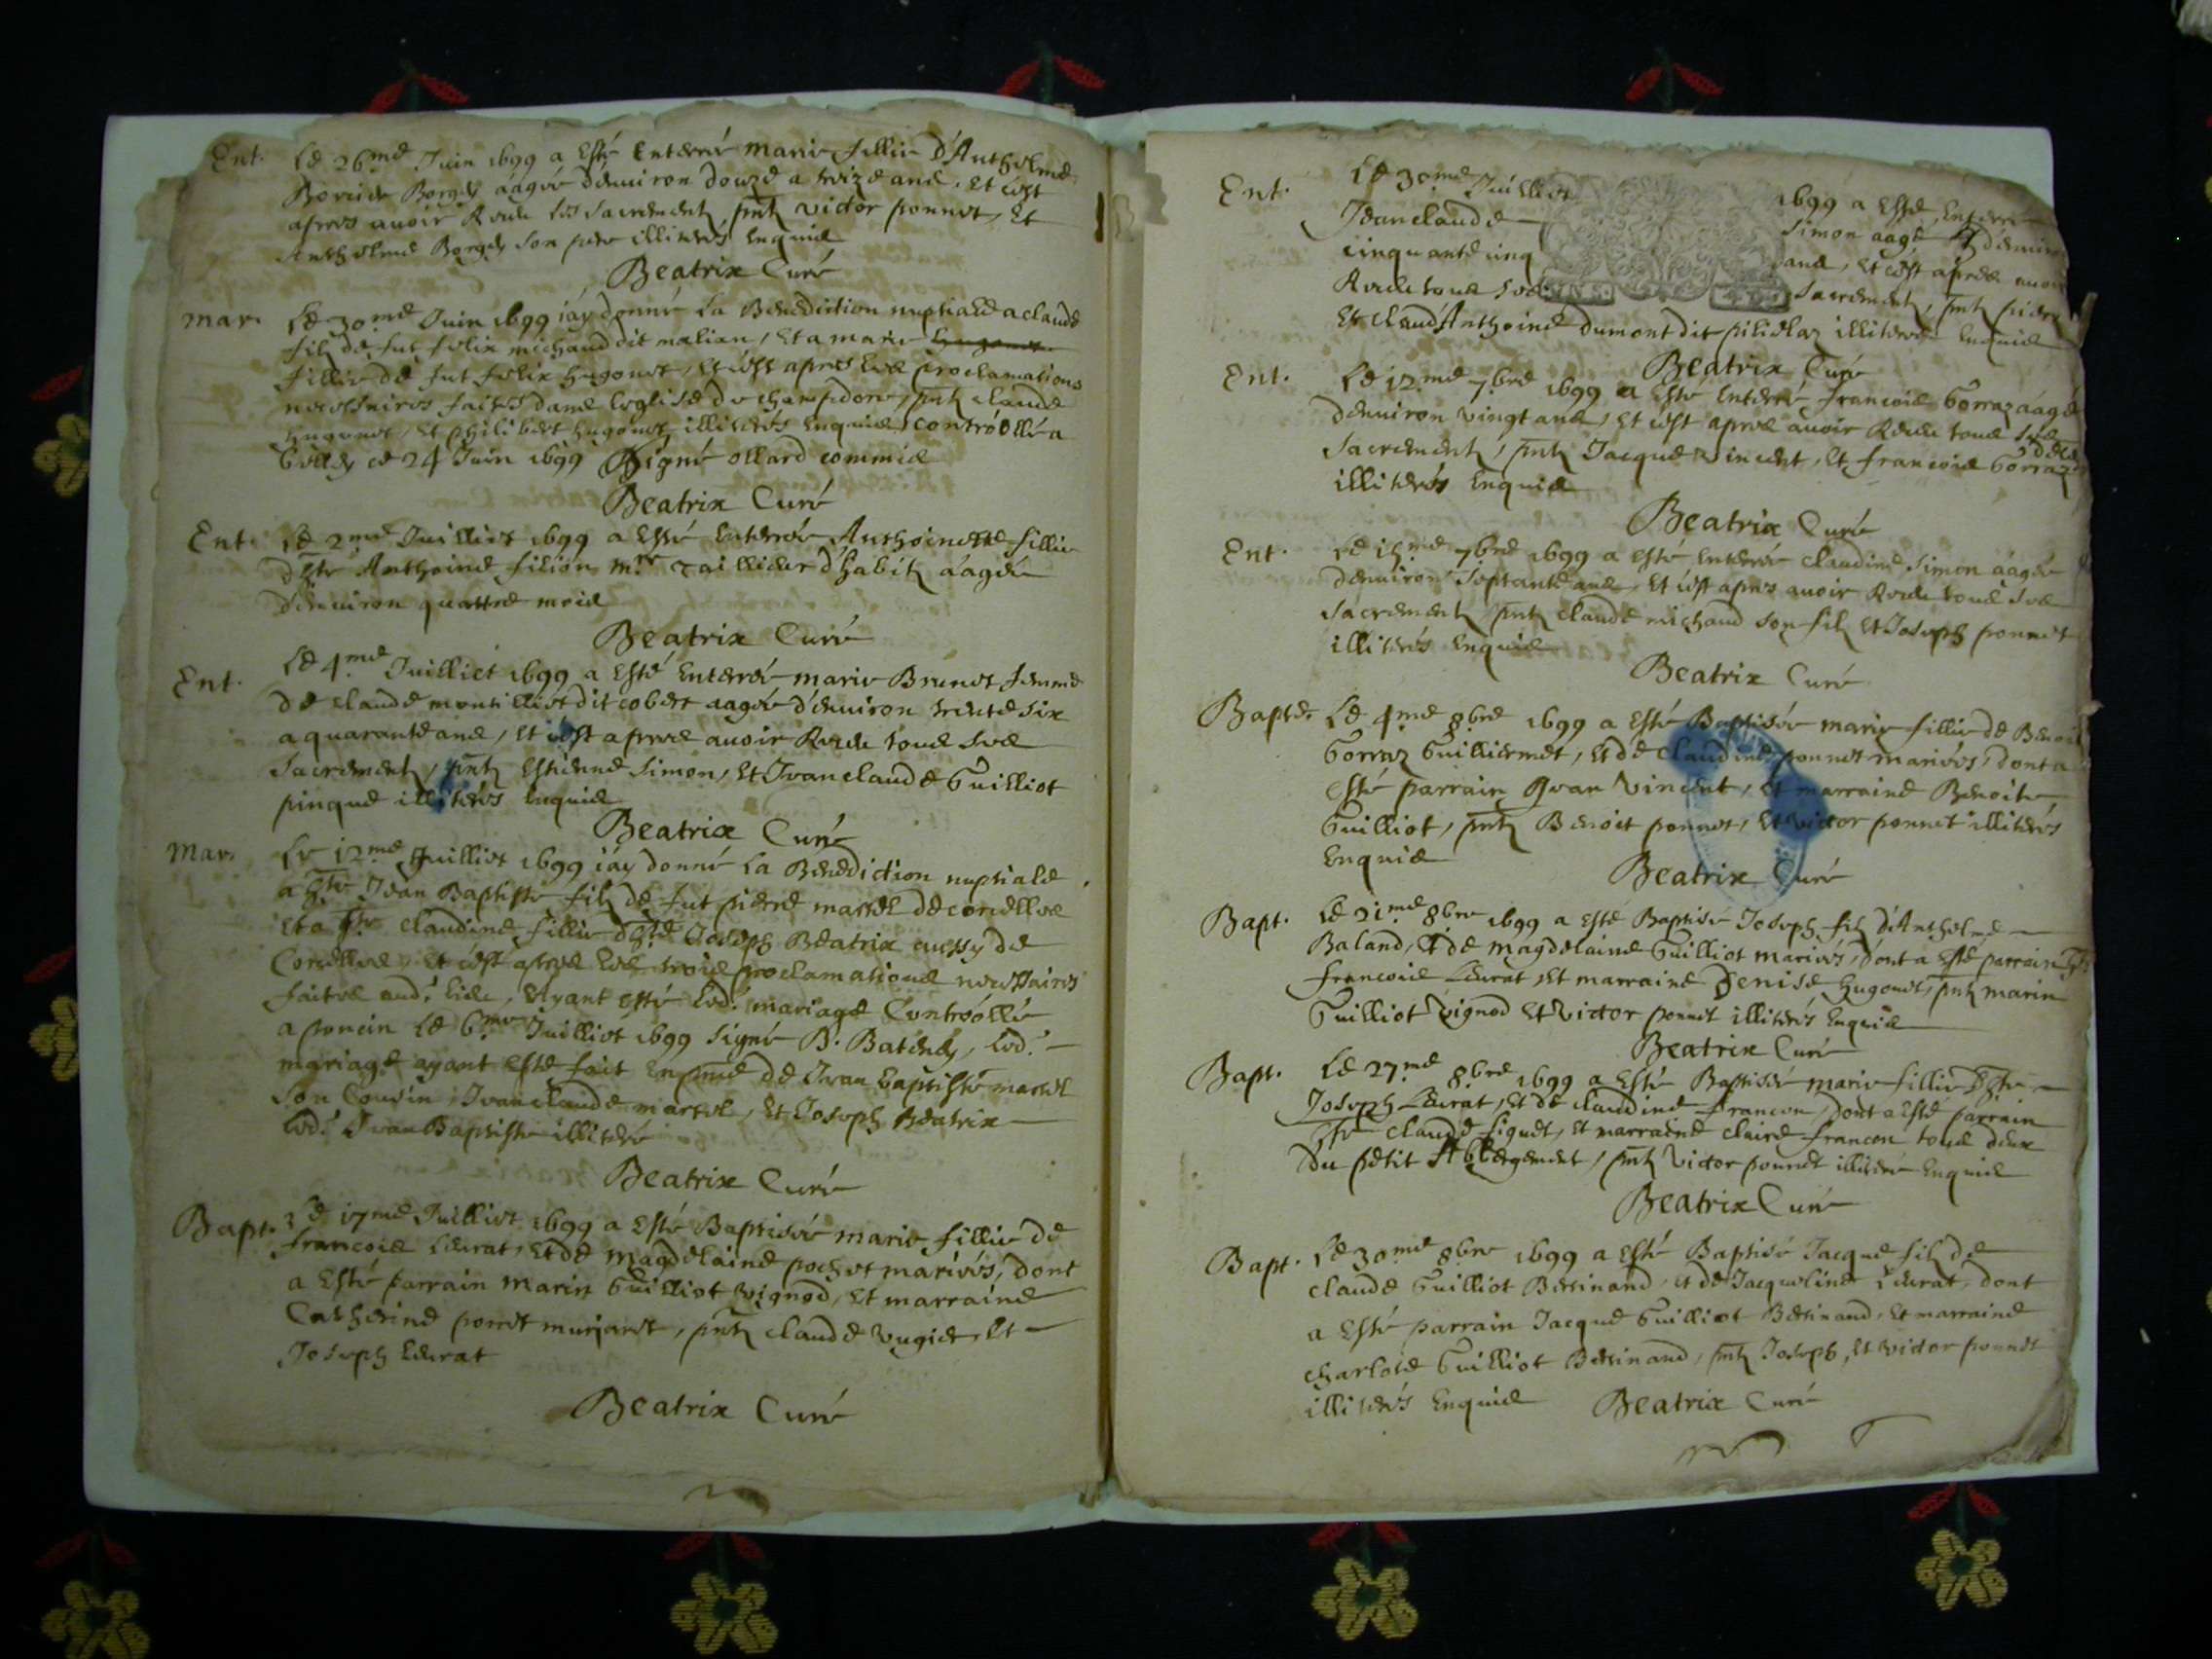 Ent. Le 26.me Juin 1699 a Esté Enterrée marie fillie d'Anthelme
Borges aagée d'enuiron douze a treize ans, Et c'est
apres auoir Receu les sacrements, pnts victor ponnet, Et
Anthelme Borges son pere illiterés Enquis
Beatrix Curé
mar. Le 30.me Juin 1699 i'ay donné La Benediction nuptiale a claude
fils de fut felix michaud dit malian, Et a marie
fillie de fut felix hugonet, Et c'est apres les proclamations
necessaires faites dans l'eglise de champdore, pnts claude
hugonet, Et philibert hugonet illiterés Enquis, controollé a
ce 24 Juin 1699 Signé ollard commis
Beatrix Curé
Ent. Le 2.me Juilliet 1699 a Esté Enterrée Anthoinette fillie
d'hte Anthoine filion m.re taillieur d'habits áagée
d'enuiron quattre mois
Beatrix Curé
Ent. Le 4.me Juilliet 1699 a Esté Enterrée marie Brunet femme
de claude montilliet dit cobert aagée d'enuiron trente six
a quarante ans, Et c'est apres auoir Receu tous les
sacrements, pnts Estienne Simon, Et Jean claude Guilliot
pinque illiterés Enquis
Beatrix Curé
mar. Le 12.me Juilliet 1699 i'ay donné La Benediction nuptiale
a hte Jean Baptiste fils de fut pierre martel de corcelles
Et a hte claudine fillie d'hte Joseph Beatrix aussy de
Corcelles, Et c'est apres les trois proclamations necessaires
faites aud. lieu, Ayant esté led. mariage Controollé
a poncin Le 6.me Juilliet 1699 Signé B. , led.
mariage ayant Esté fait En pnce de Jean baptiste martel
son Cousin, Jean claude martel, Et Joseph Beatrix
led. Jean Baptiste illiteré
Beatrix Curé
Bapt. Le 17.me Juilliet 1699 a Esté Baptisée marie fillie de
francois Leurat, Et de magdelaine pochet mariés, dont
a Esté parrain marin Guilliot vignod, Et marraine
Catherine ponet murjaret, pnts claude vugier, Et
Joseph Leurat
Beatrix Curé
Ent. Le 30.me Juilliet 1699 a Esté Enterré
Jean claude Simon aagé d'enuiron
cinquante cinq ans, Et c'est apres auoir
Receu tous les sacrements, pnts pierre
Et claud'Anthoine dumont dit illiterés Enquis
Beatrix Curé
Ent. Le 12.me 7.bre 1699 a Esté Enterré francois Gorraz áagé
d'enuiron vingt ans, Et c'est apres auoir Receu tous les
sacrements, pnts Jacque vincent, Et francois Gorraz
illiterés Enquis
Beatrix Curé
Ent. Le 15.me 7bre 1699 a Esté Enterrée claudine Simon áagée
d'enuiron septante ans, Et c'est apres auoir Receu tous les
sacrements, pnts claude michaud son fils, Et Joseph ponnet
illiterés Enquis
Beatrix Curé
Bapt. Le 4.me 8.bre 1699 a Esté Baptisée marie fillie de Benoit
Gorraz Guilliermet, Et de claudine ponnet mariés, dont a
Esté parrain Jean Vincent, Et marraine Benoite
Guilliot, pnts Benoit ponnet, Et victor ponnet illiterés
Enquis
Beatrix Curé
Bapt. Le 21.me 8.bre 1699 a Esté Baptisé Joseph fils d'Anthelme
Baland, Et de magdelaine Guilliot mariés, dont a Esté parrain hte
francois Leurat, Et marraine Denise hugonet, pnts marin
Guilliot vignod Et Victor ponnet illiterés Enquis
Beatrix Curé
Bapt. Le 27.me 8.bre 1699 a Esté Baptisée marie fillie d'hte
Joseph Leurat, Et de claudine francon, dont a Esté parrain
hte claude figuet, Et marraine claire francon tous deux
Du petit Abbergement, pnts Victor ponnet illiteré Enquis
Beatrix Curé
Bapt. Le 30.me 8.bre 1699 a Esté Baptisé Jacque fils de
claude Guilliot Bertinand, et de Jacqueline Leurat, dont
a Esté parrain Jacque Guilliot Bertinand, Et marraine
charlote Guilliot Bertinand, pnts Joseph, Et victor ponnet
illiterés Enquis Beatrix Curé